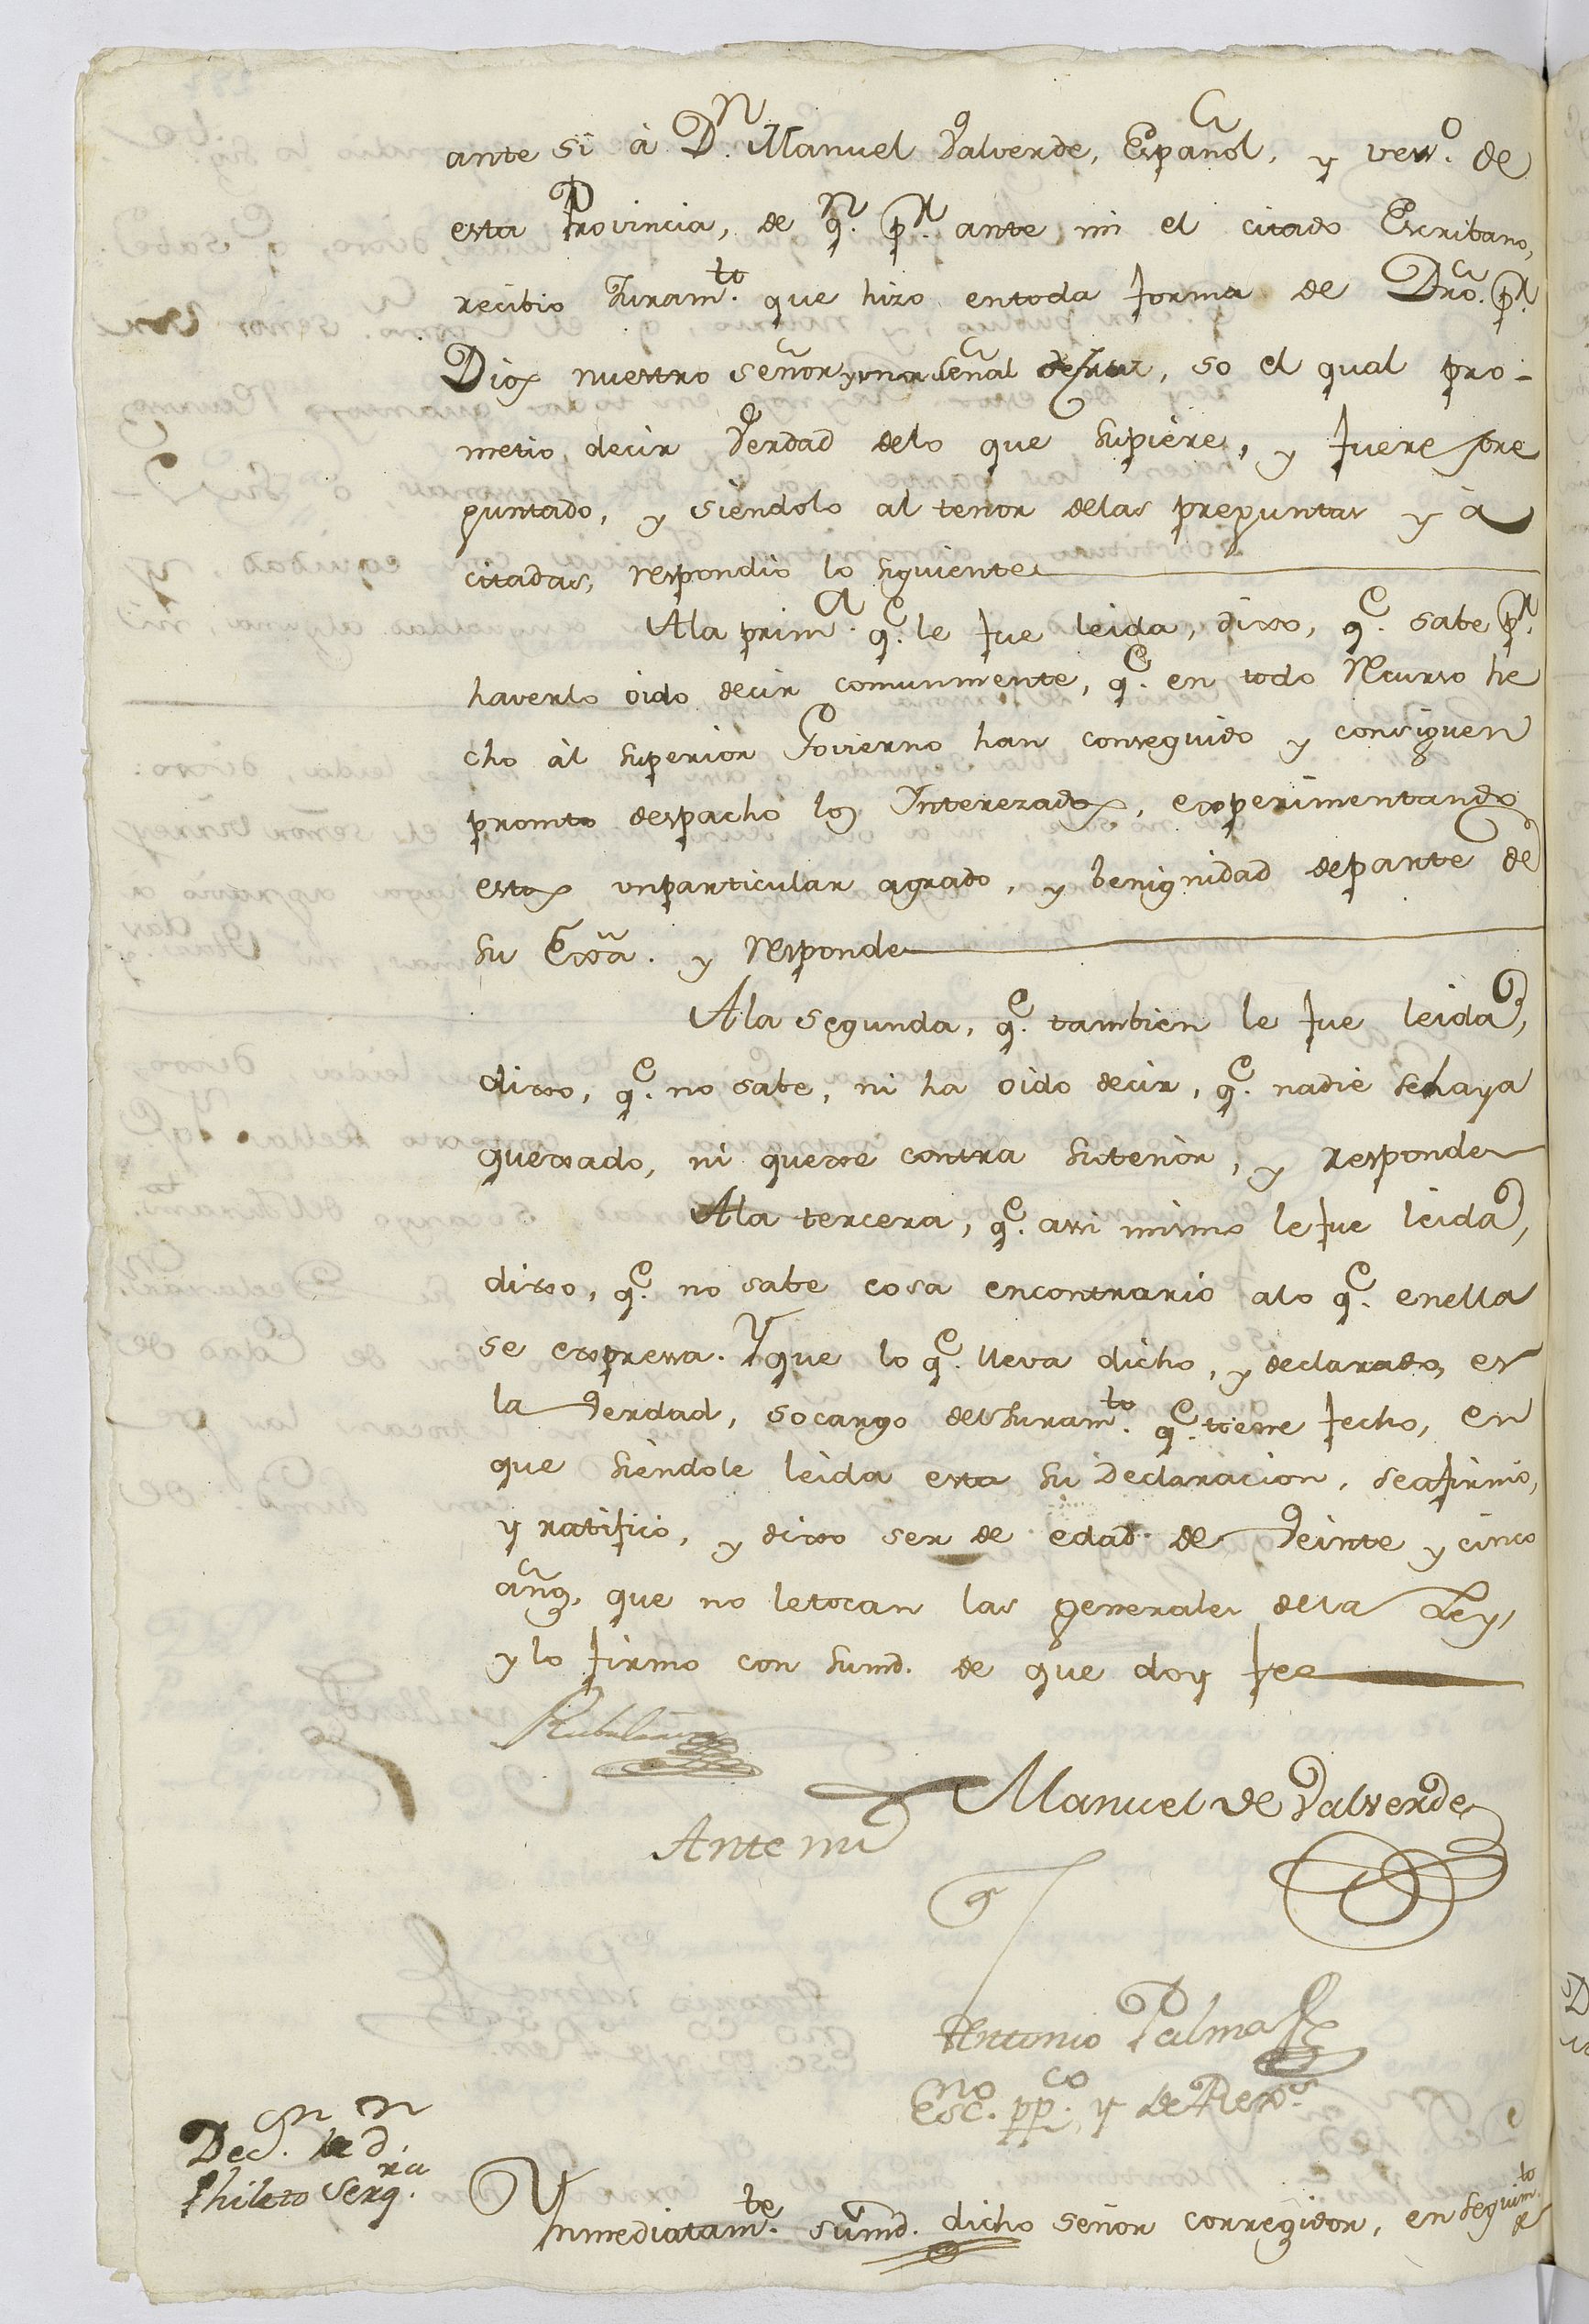 ante si à D.ⁿ Manuel Valverde, Español, y vez.º de
esta Provincia, de q.ⁿ p.ʳ ante mi el citado Escribano,
recibio Juram.ᵗᵒ que hizo entoda forma de Dro. p.ʳ
Dios nuestro señor y una señal de Cruz, so el qual pro-
metio decir Verdad delo que supiere, y fuere pre
guntado, y siendolo al tenor delas preguntas ya
citadas, respondio lo siguiente
Ala prim.ᵃ q.ᵉ le fue leida, dixo, q.ᵉ sabe p.ʳ
haverlo oido decir comunmente, q.ᵉ en todo Recurso he
cho al superior Govierno han conseguido y consiguen
promto despacho los Interezados, experimentando
estos unparticular agrado, y benignidad departe de
su Exâ. y responde
Ala segunda, q.ᵉ tambien le fue leida,
dixo, q.ᵉ no sabe, ni ha oido decir, q.ᵉ nadie sehaya
quexado, ni quexe contra sutenor, y responde
Ala tercera, q.ᵉ assi mismo le fue leida,
dixo, q.ᵉ no sabe cosa encontrario alo q.ᵉ enella
se expressa. Y que lo q.ᵉ lleva dicho, y declarado, es
la Verdad, socargo del Juram.ᵗᵒ q.ᵉ tiene fecho, en
que siendole leida esta su Declaracion, seafirmó,
y ratificó, y dixo ser de edad de Veinte y cinco
años, que no letocan las generales dela Ley,
y lo firmo con sumd. de que doy fee
Manuel de Valverde
Ante mi
Antonio Palma
Esc.ⁿᵒ pp.ᶜᵒ y de Rex.ˢ
Dec.ᵒⁿ de d.ⁿ
Phileto Serq.ʳᵃ
Ynmediatam.ᵗᵉ sumd. dicho señor corregidor, en seguim.ᵗᵒ